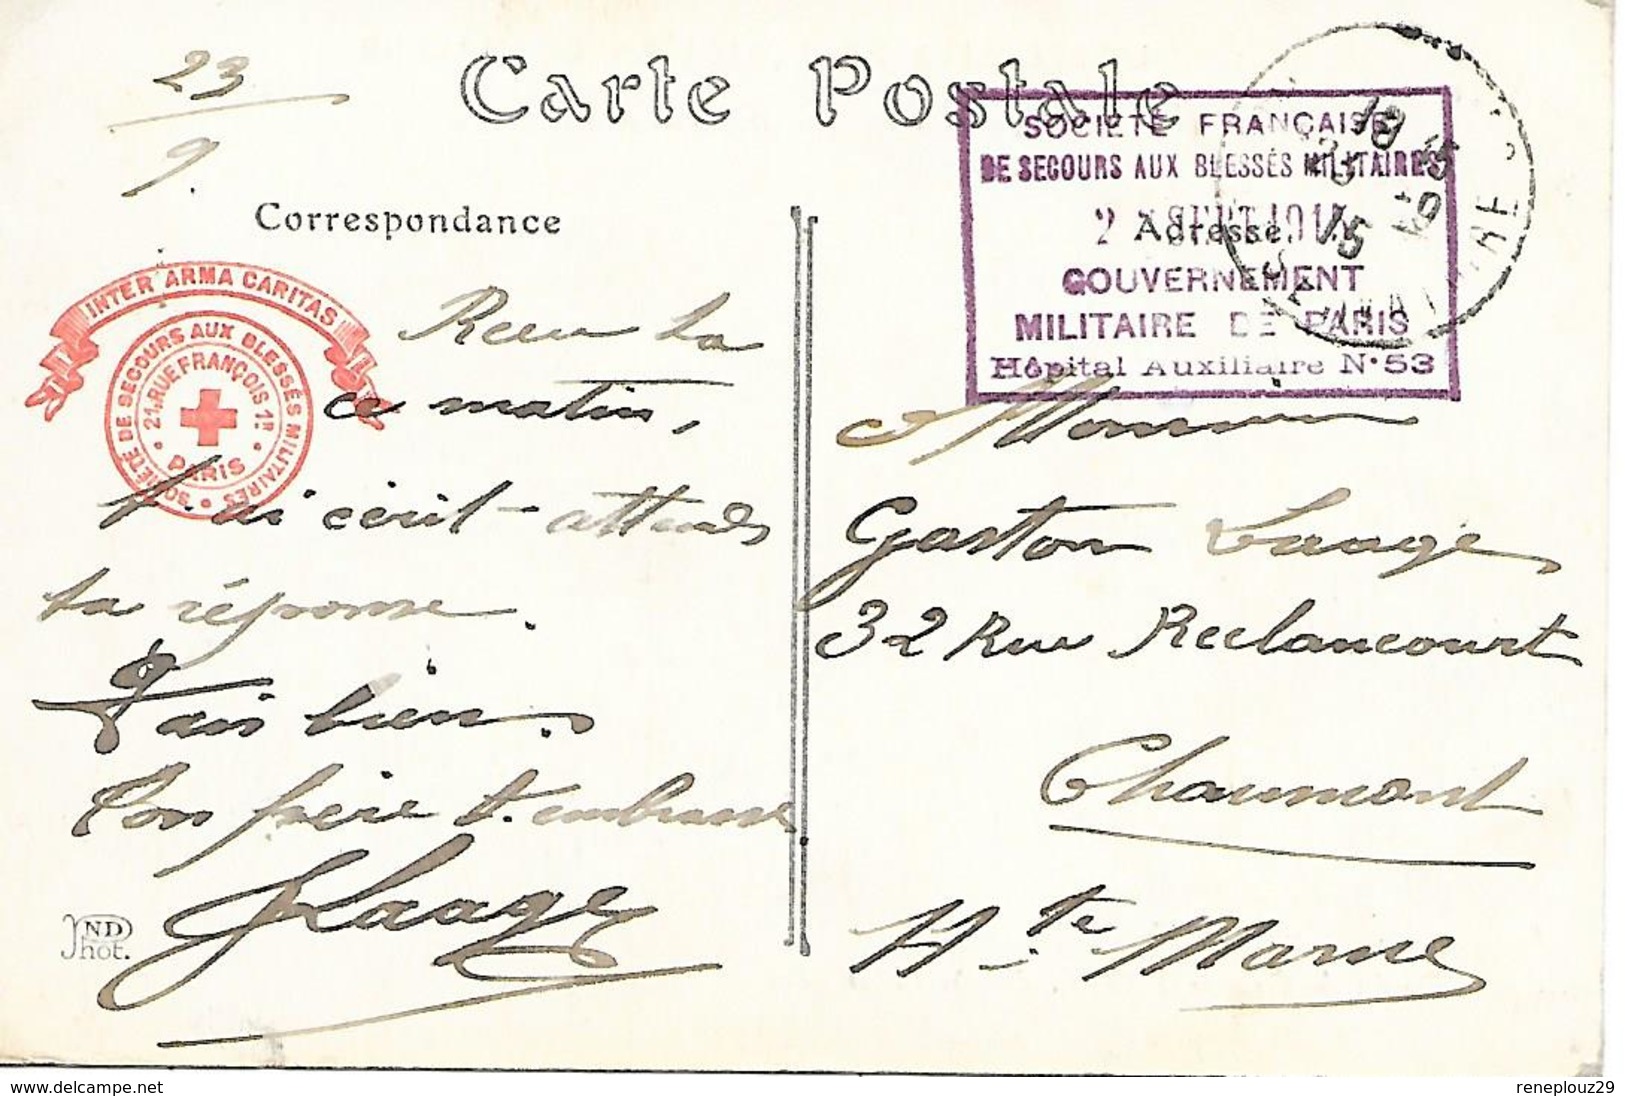 Carte Postale
23
9.
Correspondance
INTER ARMA CARITAS
SOCIÉTÉ DE SECOURS AUX BLESSÉS MILITAIRES
21, RUE FRANÇOIS 1ER
PARIS
SOCIÉTÉ FRANÇAISE
DE SECOURS AUX BLESSÉS MILITAIRES
2 SEPT 191
Adresse.
GOUVERNEMENT
MILITAIRE DE PARIS
Hôpital Auxiliaire N° 53
18 15
23 - 9
15
SEINE
Reçu ta
ce matin,
t'ai écrit - attends
ta réponse.
Vais bien.
Ton père t'embrasse
Laage
Monsieur
Gaston Laage
32 Rue Reclancourt
Chaumont
Hte Marne
ND
Phot.
delcampe.net
reneplouz29